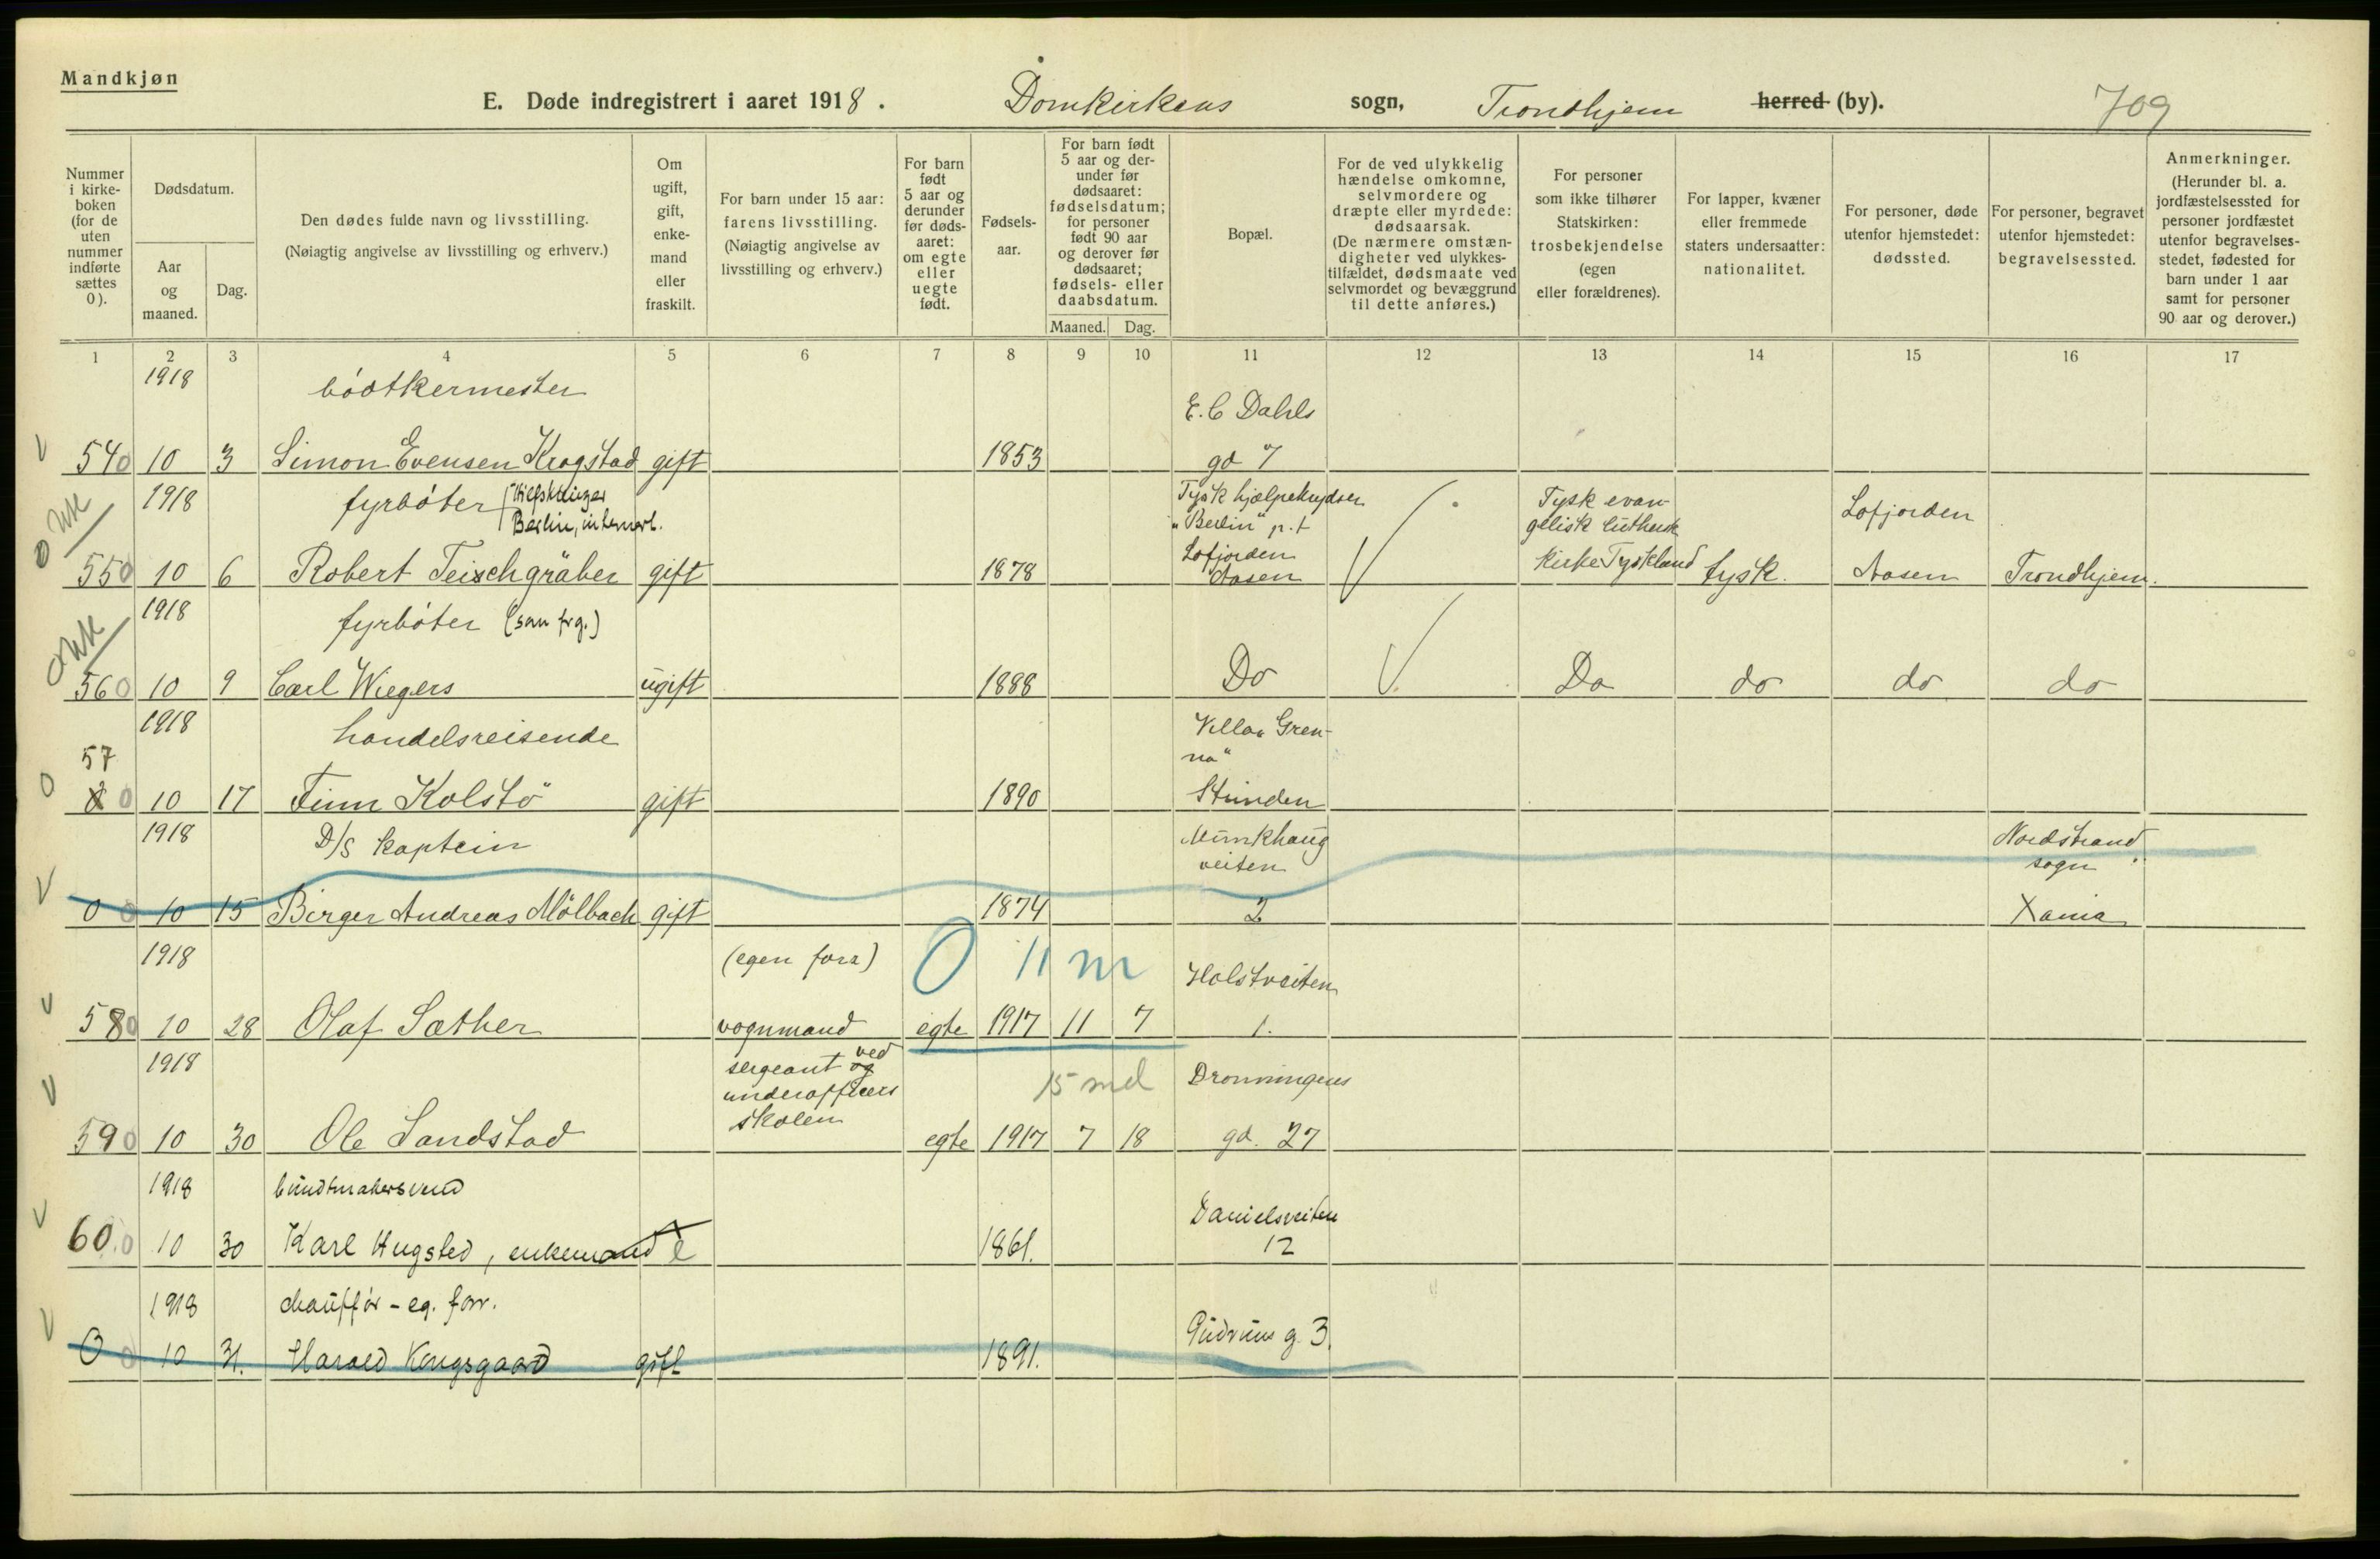 Mandkjøn
E. Døde indregistrert i aaret 1918. Domkirkens sogn, Trondhjem herred (by). 709
Nummer i kirke-boken (for de uten nummer indførte sættes 0).
Dødsdatum.
Aar og maaned.
Dag.
Den dødes fulde navn og livsstilling.
(Nøiagtig angivelse av livsstilling og erhverv.)
Om ugift, gift, enke-mand eller fraskilt.
For barn under 15 aar: farens livsstilling.
(Nøiagtig angivelse av livsstilling og erhverv.)
For barn født 5 aar og derunder før døds-aaret: om egte eller uegte født.
Fødsels-aar.
For barn født 5 aar og der-under før dødsaaret: fødselsdatum; for personer født 90 aar og derover før dødsaaret; fødsels- eller daabsdatum.
Maaned. Dag.
Bopæl.
For de ved ulykkelig hændelse omkomne, selvmordere og dræpte eller myrdede: dødsaarsak.
(De nærmere omstæn-digheter ved ulykkes-tilfældet, dødsmaate ved selvmordet og bevæggrund til dette anføres.)
For personer som ikke tilhører Statskirken: trosbekjendelse (egen eller forældrenes).
For lapper, kvæner eller fremmede staters undersaatter: nationalitet.
For personer, døde utenfor hjemstedet: dødssted.
For personer, begravet utenfor hjemstedet: begravelsessted.
Anmerkninger.
(Herunder bl. a. jordfæstelsessted for personer jordfæstet utenfor begravelses-stedet, fødested for barn under 1 aar samt for personer 90 aar og derover.)
1 2 3 4 5 6 7 8 9 10 11 12 13 14 15 16 17
1918 bödtkermester E. C Dahls
540 10 3 Simon Evensen Krogstad gift 1853 gd 7
1918 fyrböter Berlin, internert. Tysk hjælpekrydser "Berlin" p.t Lofjorden Tysk evan-gelisk luthersk Lofjorden
550 10 6 Robert Teischgräber gift 1878 Aasen kirke Tyskland tysk. Aasen Trondhjem.
1918 fyrböter
560 10 9 Carl Wiegers ugift 1888 Do Do do do do
1918 handelsreisende Villa "Gren-na"
57
0 10 17 Finn Kolstö gift 1890 Stinden
1918 D/S kaptein Munkhaug veiten Nordstrand sogn
0 0 10 15 Birger Andreas Mölbach gift 1874 2 Xania
1918 (egen forr) 0 11 m Holstveiten
580 10 28 Olaf Sæther vognmand egte 1917 11 7 1.
1918 sergeant og ved underofficers skolen 15 md Dronningens
590 10 30 Ole Sandstad egte 1917 7 18 gd. 27
1918 buntmakersvend Danielsveiten
60 0 10 30 Karl Hugsted, enkemand e 1861. 12
1918 chauffør - eg. forr. Gudruns g. 3.
0 0 10 31. Harald Kongsgaard gift 1891.